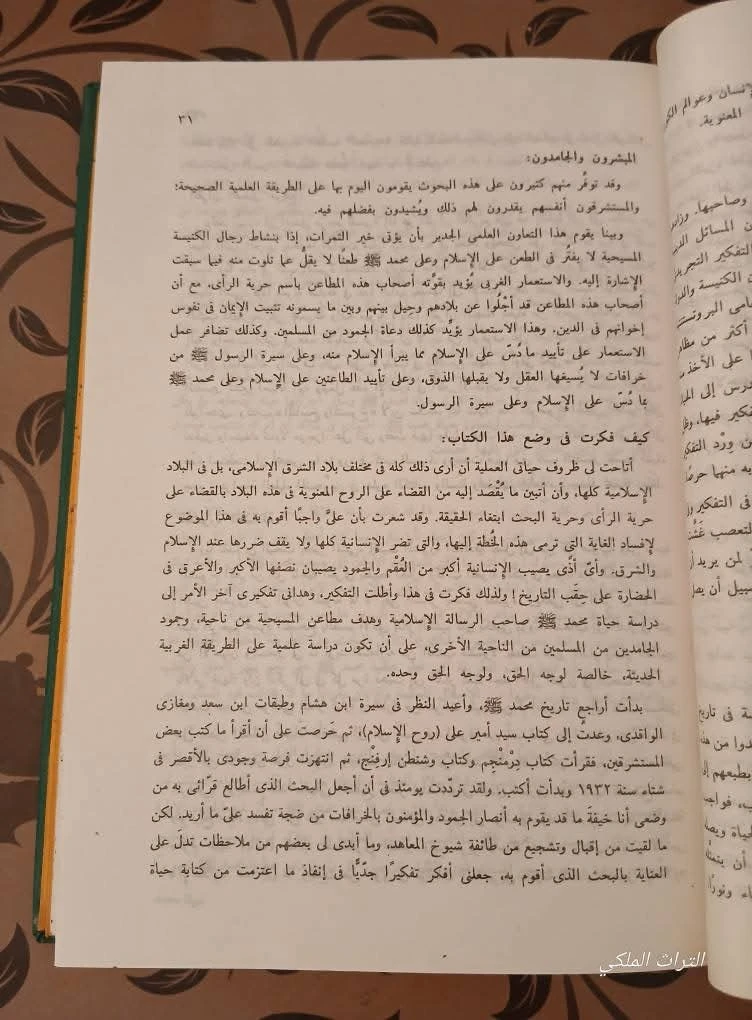 ٣١
المبشرون والجامدون:
وقد توفَّر منهم كثيرون على هذه البحوث يقومون اليوم بها على الطريقة العلمية الصحيحة؛
والمستشرقون أنفسهم يقدرون لهم ذلك ويُشيدون بفضلهم فيه.
وبينا يقوم هذا التعاون العلمى الجدير بأن يؤتى خير الثمرات، إذا بنشاط رجال الكنيسة
المسيحية لا يفتُر فى الطعن على الإسلام وعلى محمد ﷺ طعنًا لا يقلُّ عما تلوت منه فيما سبقت
الإشارة إليه. والاستعمار الغربى يُؤيد بقوَّته أصحاب هذه المطاعن باسم حرية الرأى، مع أن
أصحاب هذه المطاعن قد أجْلُوا عن بلادهم وحِيل بينهم وبين ما يسمونه تثبيت الإيمان فى نفوس
إخوانهم فى الدين. وهذا الاستعمار يؤيِّد كذلك دعاة الجمود من المسلمين. وكذلك تضافر عمل
الاستعمار على تأييد ما دُسّ على الإسلام مما يبرأ الإسلام منه، وعلى سيرة الرسول ﷺ من
خرافات لا يُسيغها العقل ولا يقبلها الذوق، وعلى تأييد الطاعنين على الإسلام وعلى محمد ﷺ
بما دُسّ على الإسلام وعلى سيرة الرسول.
كيف فكرت فى وضع هذا الكتاب:
أتاحت لى ظروف حياتى العملية أن أرى ذلك كله فى مختلف بلاد الشرق الإسلامى، بل فى البلاد
الإسلامية كلها، وأن أتبين ما يُقْصَد إليه من القضاء على الروح المعنوية فى هذه البلاد بالقضاء على
حرية الرأى وحرية البحث ابتغاء الحقيقة. وقد شعرت بأن علىَّ واجبًا أقوم به فى هذا الموضوع
لإفساد الغاية التى ترمى هذه الخُطة إليها، والتى تضر الإنسانية كلها ولا يقف ضررها عند الإسلام
والشرق. وأىّ أذًى يصيب الإنسانية أكبر من العُقْم والجمود يصيبان نصفها الأكبر والأعرق فى
الحضارة على حِقَب التاريخ! ولذلك فكرت فى هذا وأطلت التفكير، وهدانى تفكيرى آخر الأمر إلى
دراسة حياة محمد ﷺ صاحب الرسالة الإسلامية وهدف مطاعن المسيحية من ناحية، وجمود
الجامدين من المسلمين من الناحية الأخرى، على أن تكون دراسة علمية على الطريقة الغربية
الحديثة، خالصة لوجه الحق، ولوجه الحق وحده.
بدأت أراجع تاريخ محمد ﷺ، وأعيد النظر فى سيرة ابن هشام وطبقات ابن سعد ومغازى
الواقدى، وعدت إلى كتاب سيد أمير على (روح الإسلام)، ثم حَرصت على أن أقرأ ما كتب بعض
المستشرقين، فقرأت كتاب دِرْمنْجِم وكتاب وشنطن إرفِنْج، ثم انتهزت فرصة وجودى بالأقصر فى
شتاء سنة ١٩٣٢ وبدأت أكتب. ولقد تردّدت يومئذ فى أن أجعل البحث الذى أطالع قرّائى به من
وضعى أنا خيفةَ ما قد يقوم به أنصار الجمود والمؤمنون بالخرافات من ضجة تفسد علىّ ما أريد. لكن
ما لقيت من إقبال وتشجيع من طائفة شيوخ المعاهد، وما أبدى لى بعضهم من ملاحظات تدلّ على
العناية بالبحث الذى أقوم به، جعلنى أفكر تفكيرًا جدّيًّا فى إنفاذ ما اعتزمت من كتابة حياة
التراث الملكي